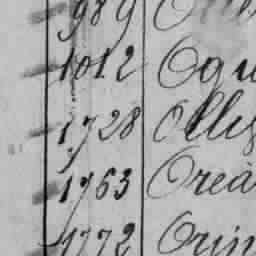 989
1012 Ogu
1728 Olly
1763 Orea
1772 Orin